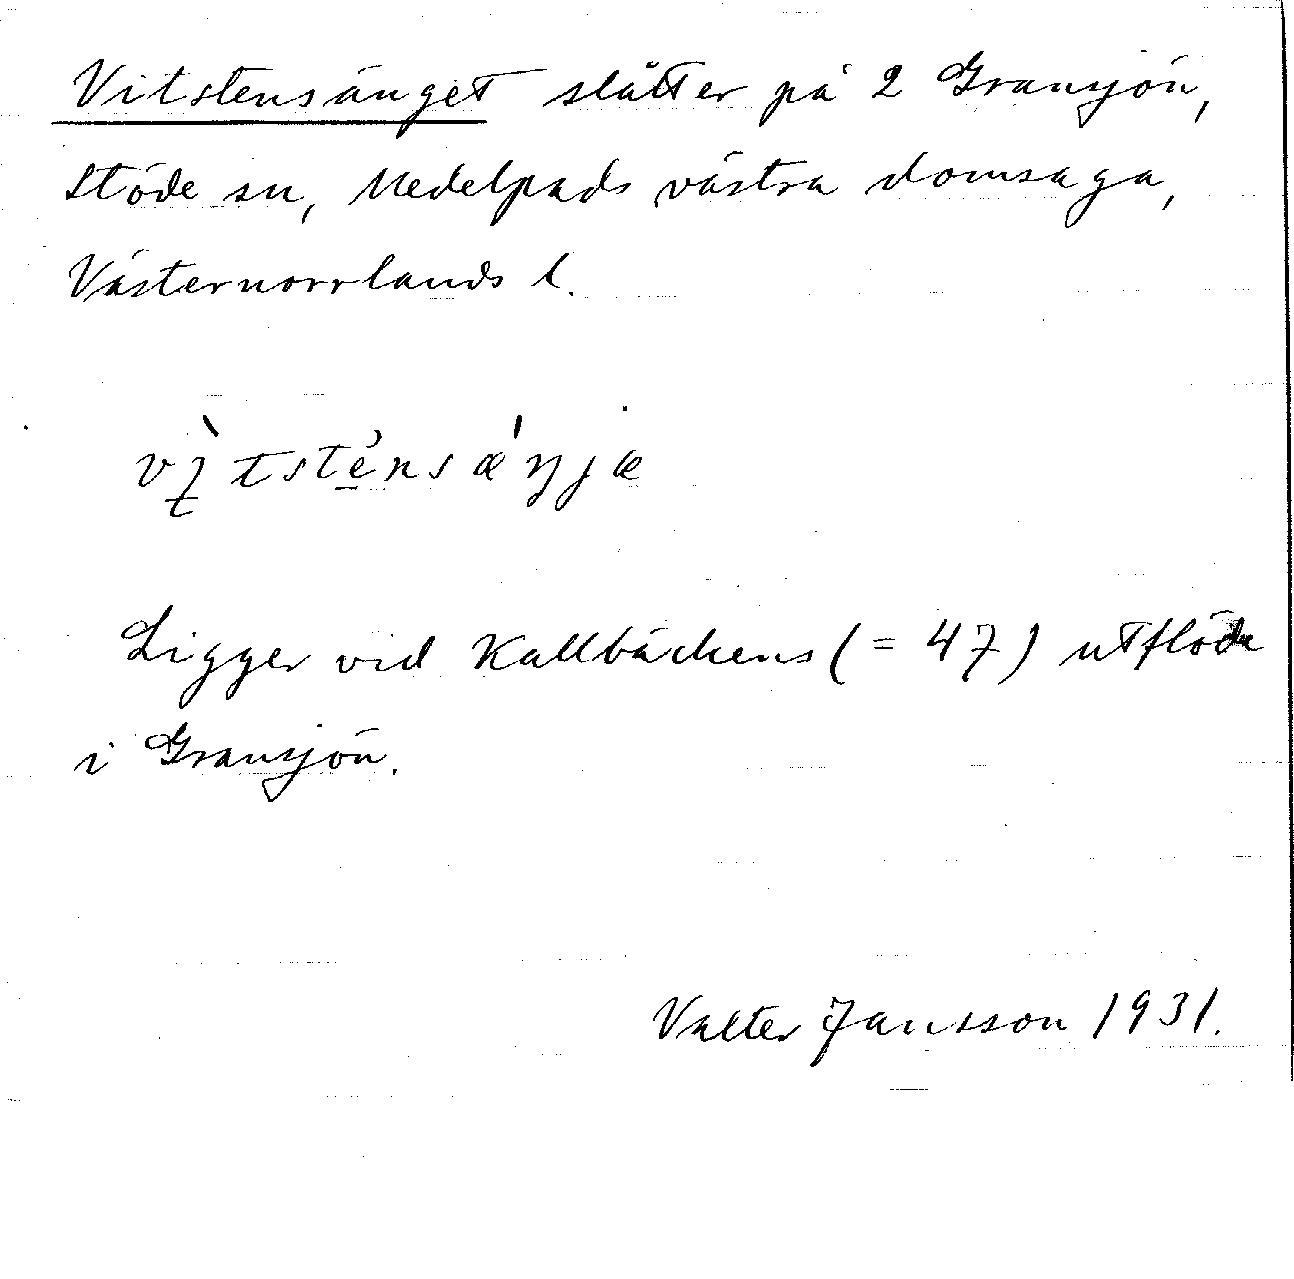 Vitstensänget slåtter på 2 Gransjön,
Stöde sn, Medelpads västra domsaga,
Västernorrlands l.
Ligger vid Kallbäckens (= 47) utflöde
i Gransjön.
Valter Jansson 1931.